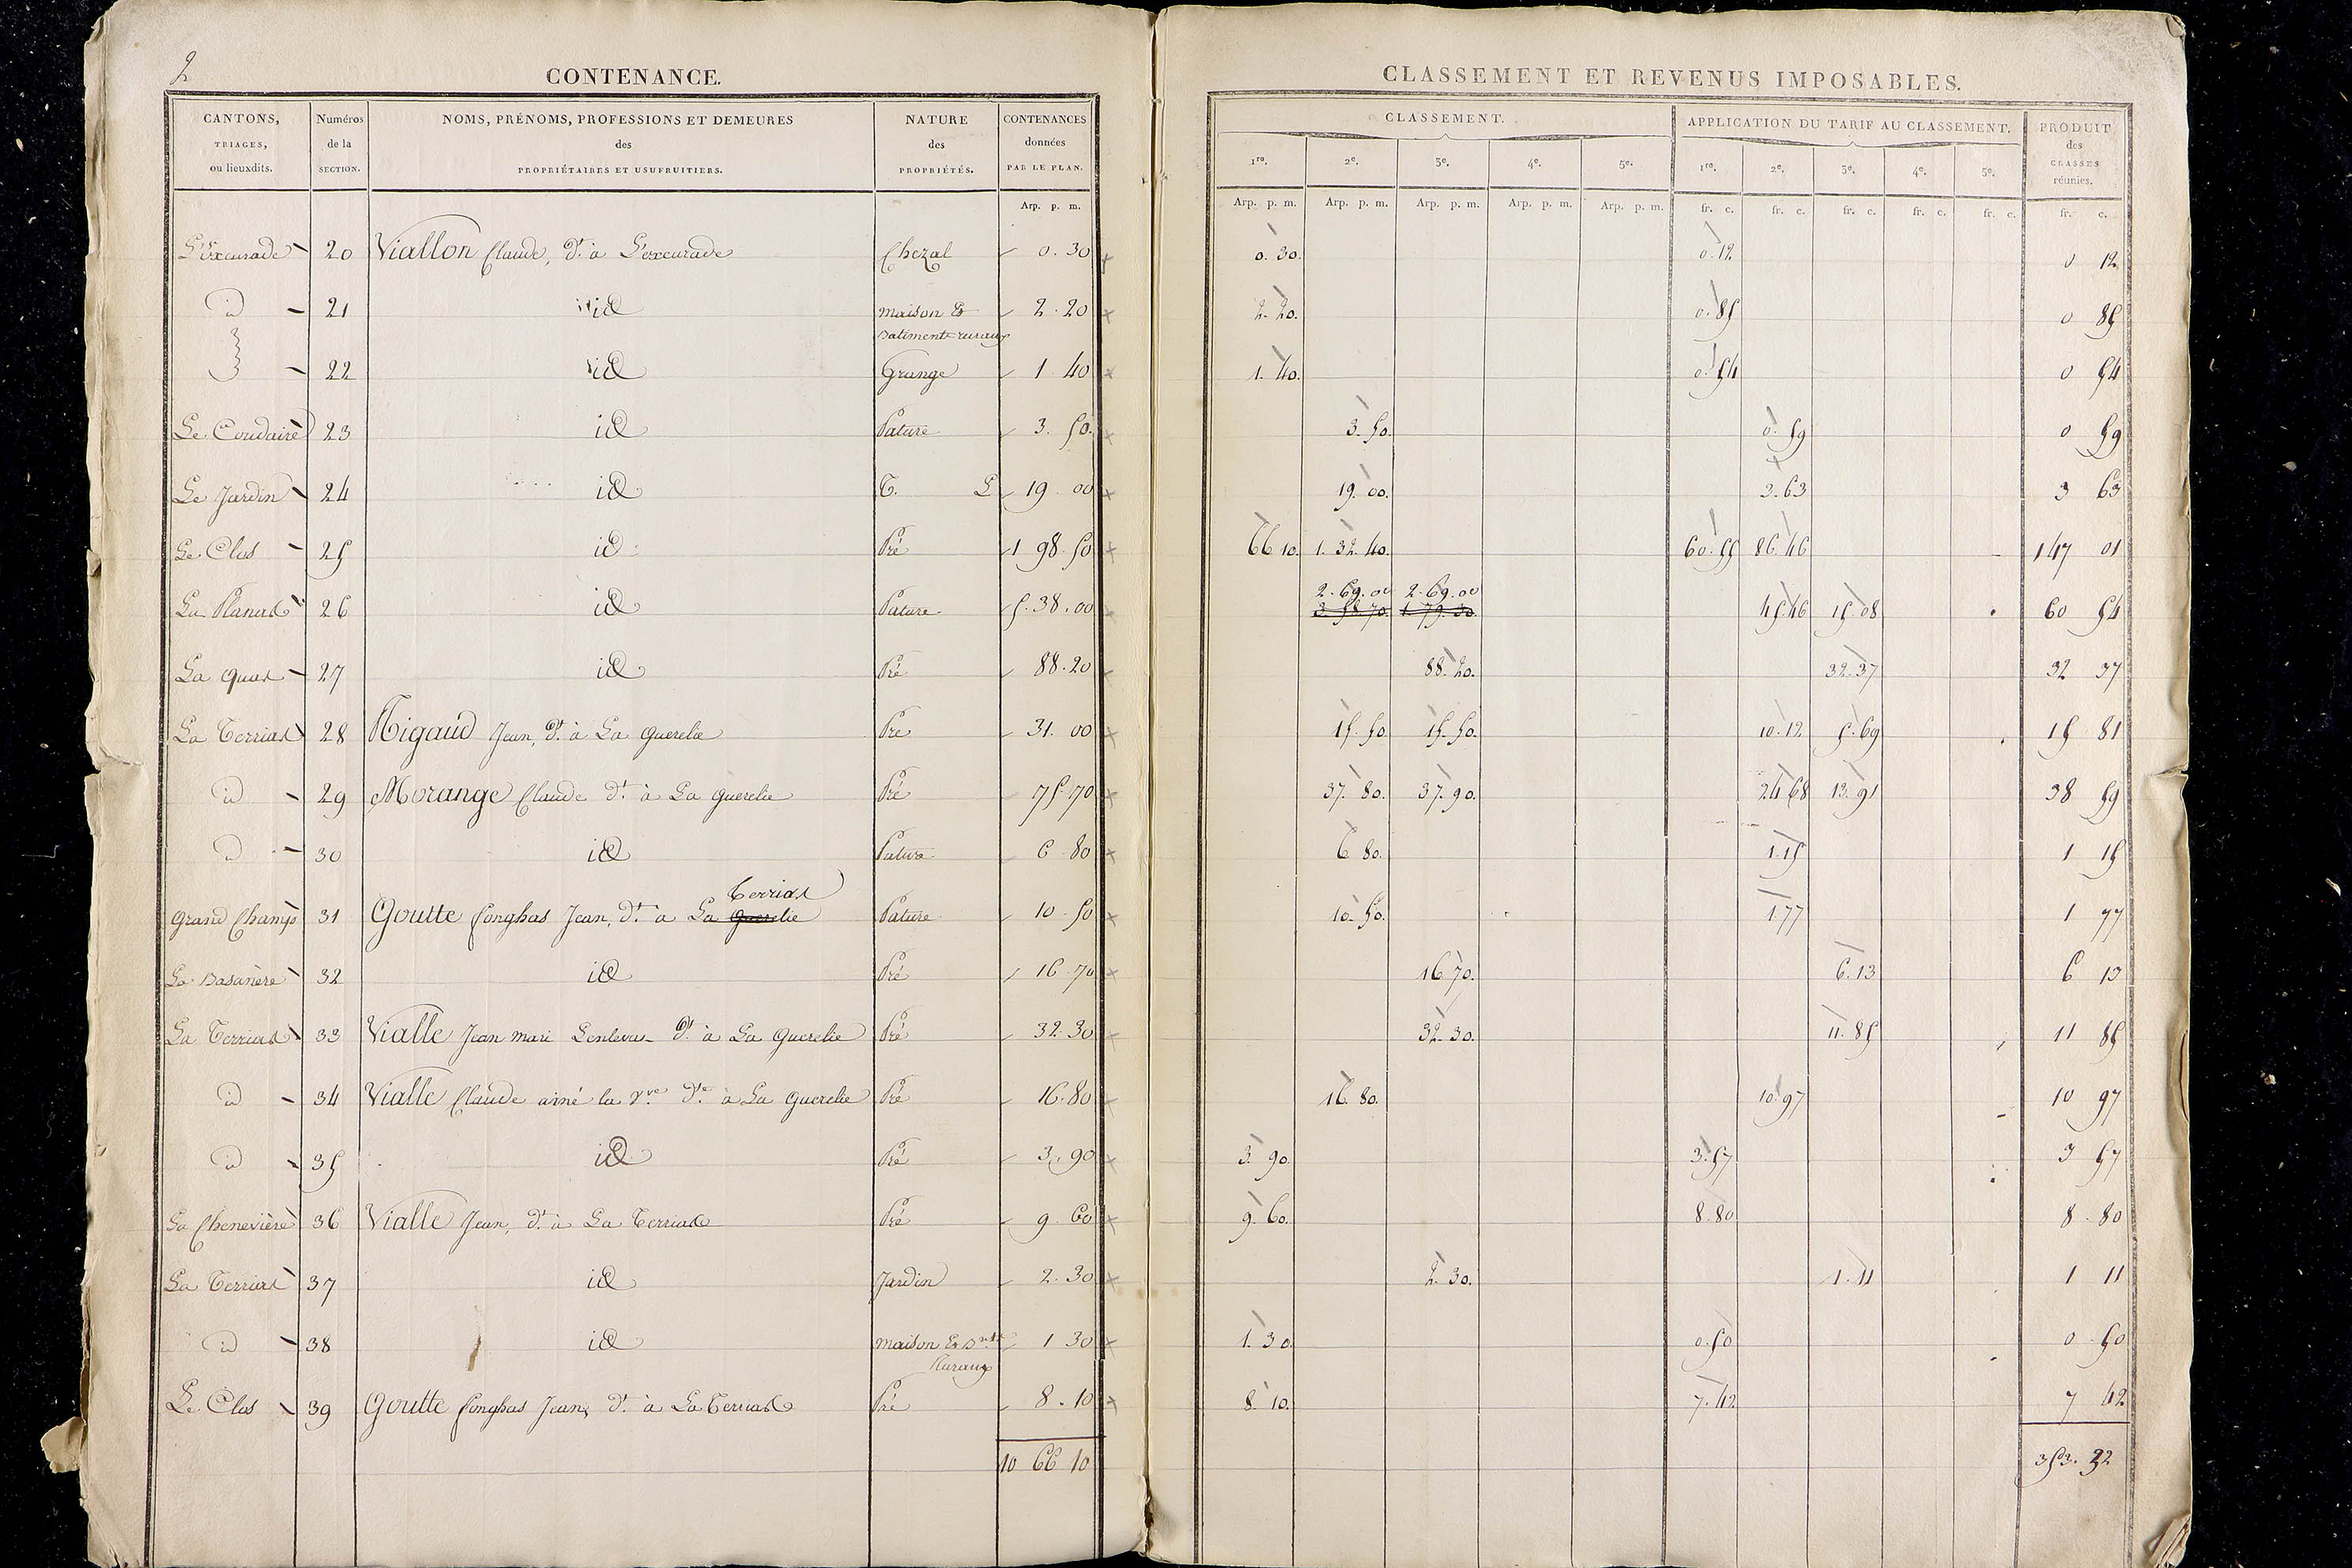 2
CONTENANCE.
CANTONS, TRIAGES, ou lieuxdits. | Numéros de la SECTION. | NOMS, PRÉNOMS, PROFESSIONS ET DEMEURES des PROPRIÉTAIRES ET USUFRUITIERS. | NATURE des PROPRIÉTÉS. | CONTENANCES données PAR LE PLAN.
Arp. p. m.
L'Excurade 20 Viallon Claude, dt. à L'excurade Chezal 0.30
id 21 id maison & Batiments ruraux 2.20
22 id Grange 1 40
Le Coudaire 23 id Pature 3.50
Le Jardin 24 id T. L 19 00
Le Clos 25 id Pré 1 98.50
La Planas 26 id Pature 5.38.00
La Quas 27 id Pré 88.20
La Terrias 28 Rigaud Jean, dt. à La Querelie Pré 31.00
id 29 Morange Claude dt. à La Querelie Pré 75.70
id 30 id Pature 6 80
Terrias
Grand Champs 31 Goutte fonghas Jean, dt. à La Querelie Pature 10 50
La 32 id Pré 16 70
La Terrias 33 Vialle Jean marie dt. à La Querelie Pré 32.30
id 34 Vialle Claude ainé la vve. dte. à La Querelie Pré 16.80
id 35 id Pré 3.90
La Chenevière 36 Vialle Jean, dt. à La Terrias Pré 9.60
La Terrias 37 id Jardin 2.30
id 38 id maison & Bnts. Ruraux 1 30
Le Clos 39 Goutte fonghas Jean, dt. à La Terrias Pré 8.10
10 66 10
CLASSEMENT ET REVENUS IMPOSABLES.
CLASSEMENT. | APPLICATION DU TARIF AU CLASSEMENT. | PRODUIT des CLASSES réunies.
1re. 2e. 3e. 4e. 5e. 1re. 2e. 3e. 4e. 5e.
Arp. p. m. Arp. p. m. Arp. p. m. Arp. p. m. Arp. p. m. fr. c. fr. c. fr. c. fr. c. fr. c. fr. c.
0.30. 0.12 0 12
2.20. 0.85 0 85
1.40. 0.54 0 54
3.50. 0.59 0 59
19.00. 3.63 3 63
66 10. 1.32.40. 60.55 86.46 147 01
2.69.00 2.69.00
3.58.70. 1.79.30. 45.46 15.08 60 54
88.20. 32.37 32 37
15.50 15.50. 10.12 5.69 15 81
37.80. 37.90. 24.68 13.91 38 59
6 80. 1.15 1 15
10.50. 1.77 1 77
16.70. 6.13 6 13
32.30. 11.85 11 85
16.80. 10.97 10 97
3.90. 3.57 3 57
9.60. 8.80 8.80
2.30. 1.11 1 11
1.30. 0.50 0 50
8.10. 7.42 7 42
353.22